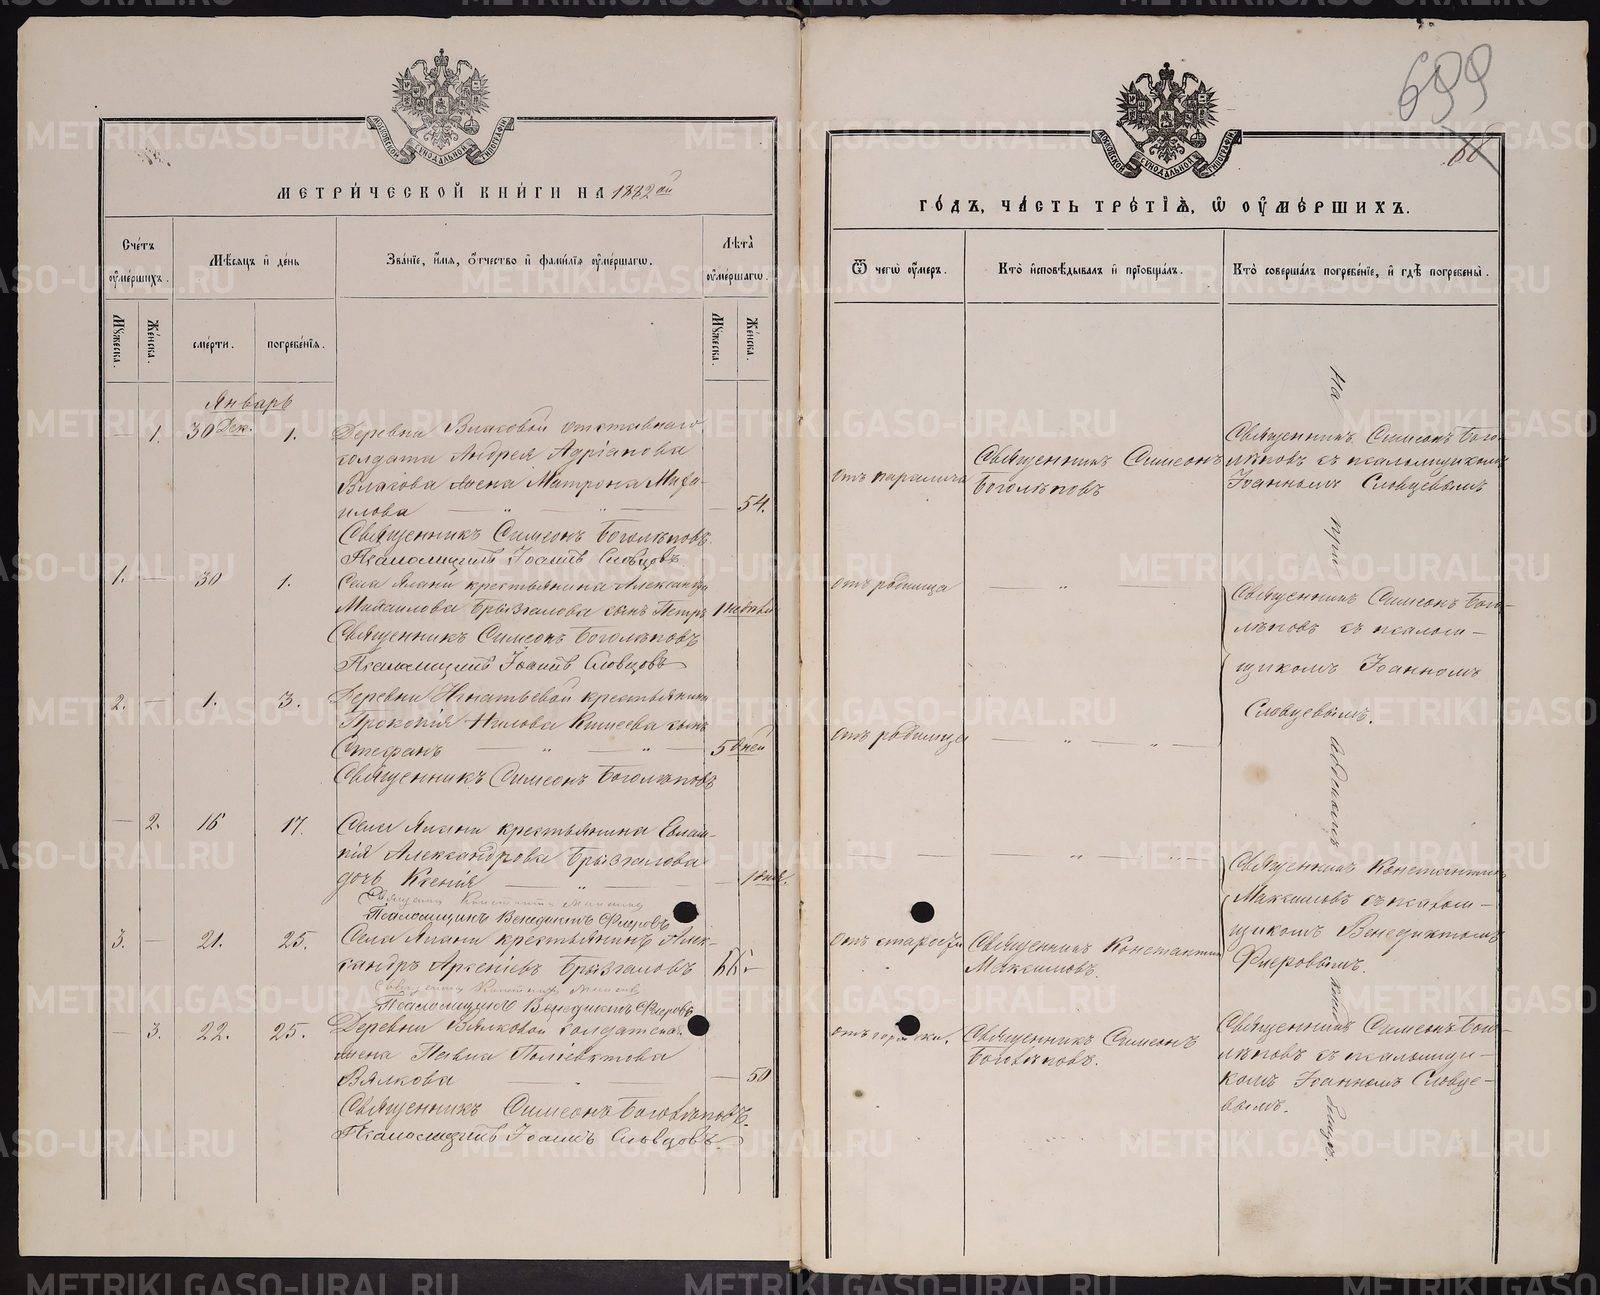 МОСКОВСКОЙ СѴНОДАЛЬНОЙ ТИПОГРАФІИ
МЕТРИ́ЧЕСКОЙ КНИ́ГИ НА 1882ой
Сче́тъ ᲂу҆ме́ршихъ.
Мѣ́сяцъ и҆ де́нь
Зва́ніе, и҆́мя, ѻ҆́тчество и҆ фами́лія ᲂу҆ме́ршагѡ.
Лѣ́та ᲂу҆ме́ршагѡ.
Мꙋ́жеска.
Же́нска.
сме́рти.
погребе́нія.
Мꙋ́жеска.
Же́нска.
Январь
— 1. 30 Дек. 1.
Деревни Власовой отставнаго
солдата Андрея Адріанова
Власова жена Матрона Миха-
илова — " — " — — 54.
Священникъ Симеонъ Боголѣповъ
Псаломщикъ Іоаннъ Словцовъ
1. — 30 1.
Села Япани крестьянина Александра
Михаилова Брызгалова сынъ Петръ 1 недѣли
Священникъ Симеонъ Боголѣповъ
Псаломщикъ Іоаннъ Словцовъ
2. — 1. 3.
Деревни Игнатьевой крестьянина
Прокопія Нилова сынъ
Стефанъ — " — " — 5 дней
Священникъ Симеонъ Боголѣповъ
— 2. 16 17.
Села Япани крестьянина Евлам-
пія Александрова Брызгалова
дочь Ксенія — " — — 1 дня.
Священникъ Константинъ Максимовъ
Псаломщикъ Венедиктъ Флеровъ
3. — 21. 25.
Села Япани крестьянинъ Алек-
сандръ Арсеніевъ Брызгаловъ 66. —
Священникъ Константинъ Максимовъ
Псаломщикъ Венедиктъ Флеровъ
— 3. 22. 25.
Деревни Вялковой солдатская
жена Павла Поліевктова
Вялкова — " — — 50
Священникъ Симеонъ Боголѣповъ.
Псаломщикъ Іоаннъ Словцовъ.
699
68
МОСКОВСКОЙ СѴНОДАЛЬНОЙ ТИПОГРАФІИ
ГО́ДЪ, ЧА́СТЬ ТРЕ́ТІѦ, Ѡ҆ ОУ҆МЕ́РШИХЪ.
Ѿ чегѡ̀ ᲂу҆́меръ.
Кто̀ и҆сповѣ́дывалъ и҆ пріѡбща́лъ.
Кто̀ соверша́лъ погребе́ніе, и҆ гдѣ̀ погребены̀.
отъ паралича
Священникъ Симеонъ
Боголѣповъ
Священникъ Симеонъ Бого-
лѣповъ съ псаломщикомъ
Іоанномъ Словцевымъ
отъ родимца — " —
Священникъ Симеонъ Бого-
лѣповъ съ псалом-
щикомъ Іоанномъ
Словцевымъ.
отъ родимца — " — " —
— — — " — — "
Священникъ Константинъ
Максимовъ съ псалом-
щикомъ Венедиктомъ
Флеровымъ.
отъ старости
Священникъ Константинъ
Максимовъ.
отъ горячки.
Священникъ Симеонъ
Боголѣповъ.
Священникъ Симеонъ Бого-
лѣповъ съ псаломщи-
комъ Іоанномъ Словце-
вымъ.
На при ходскомъ клад бищѣ.
METRIKI.GASO-URAL.RU